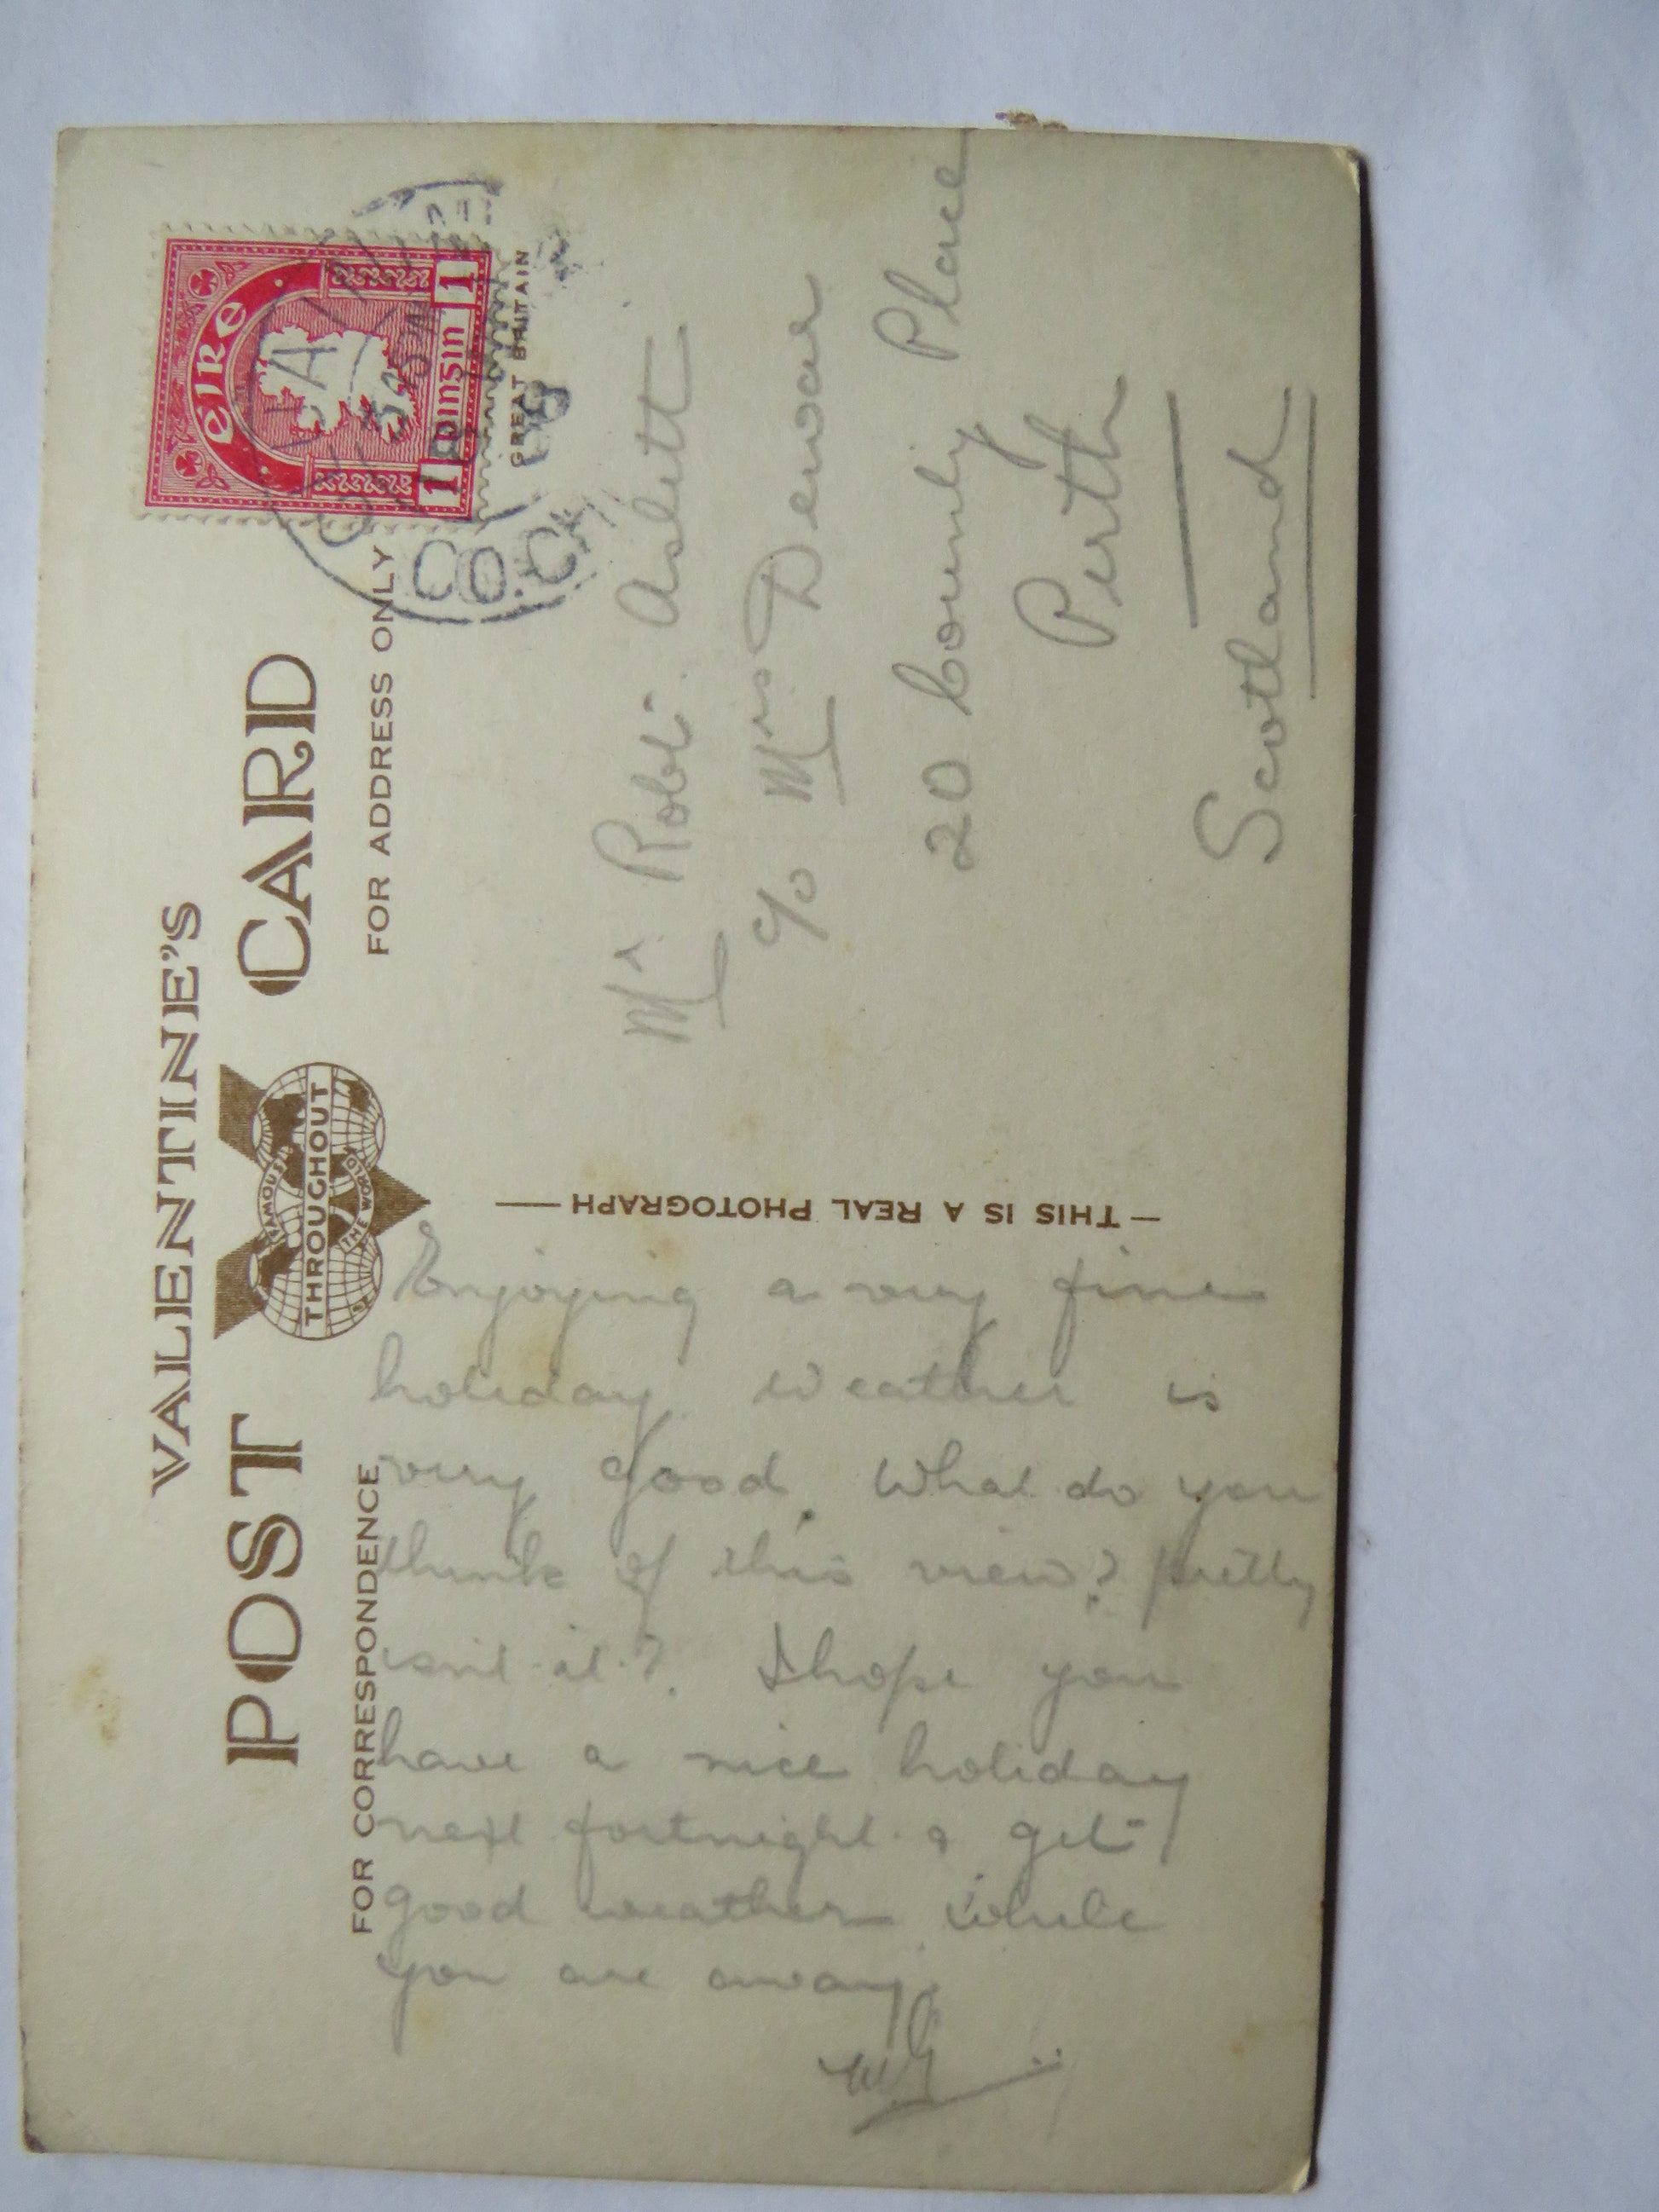 VALENTINE'S
POST CARD
FAMOUS
THROUGHOUT
THE WORLD
FOR CORRESPONDENCE
FOR ADDRESS ONLY
éire
1 pinsin 1
GREAT BRITAIN
CO.
THIS IS A REAL PHOTOGRAPH
Enjoying a very fine
holiday weather is
very good. What do you
think of this view? pretty
isnt it? I hope you
have a nice holiday
next fortnight & get
good weather while
you are away.
Mr Robt. Aslett
c/o Mrs Dewar
20 County Place
Perth
Scotland